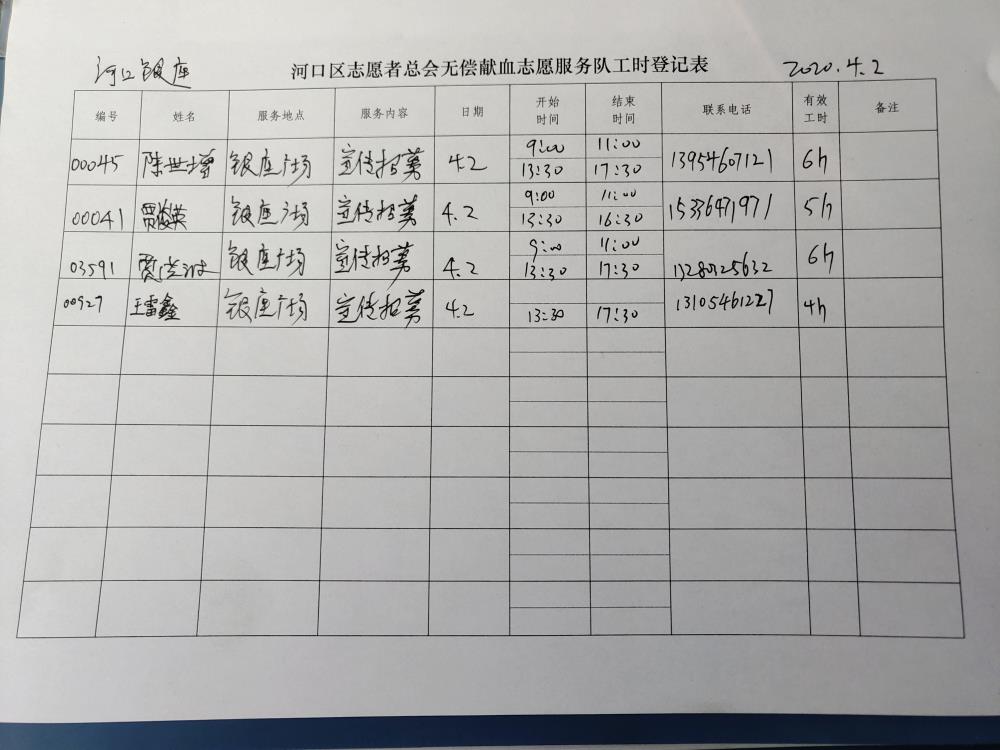 河口银座 河口区志愿者总会无偿献血志愿服务队工时登记表 2020.4.2
编号 姓名 服务地点 服务内容 日期 开始时间 结束时间 联系电话 有效工时 备注
00045 陈世增 银座广场 宣传招募 4.2 9:00 11:00 13954607121 6h
13:30 17:30
00041 银座广场 宣传招募 4.2 9:00 11:00 15336471971 5h
13:30 16:30
03591 银座广场 宣传招募 4.2 9:00 11:00 6h
13:30 17:30
00927 王雷鑫 银座广场 宣传招募 4.2 13:30 17:30 13105461227 4h